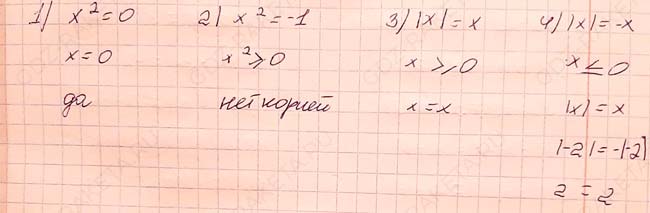 1) x² = 0
x = 0
да
2) x² = -1
x² ≥ 0
нет корней
3) |x| = x
x ≥ 0
x = x
4) |x| = -x
x ≤ 0
|x| = x
|-2| = -(-2)
2 = 2